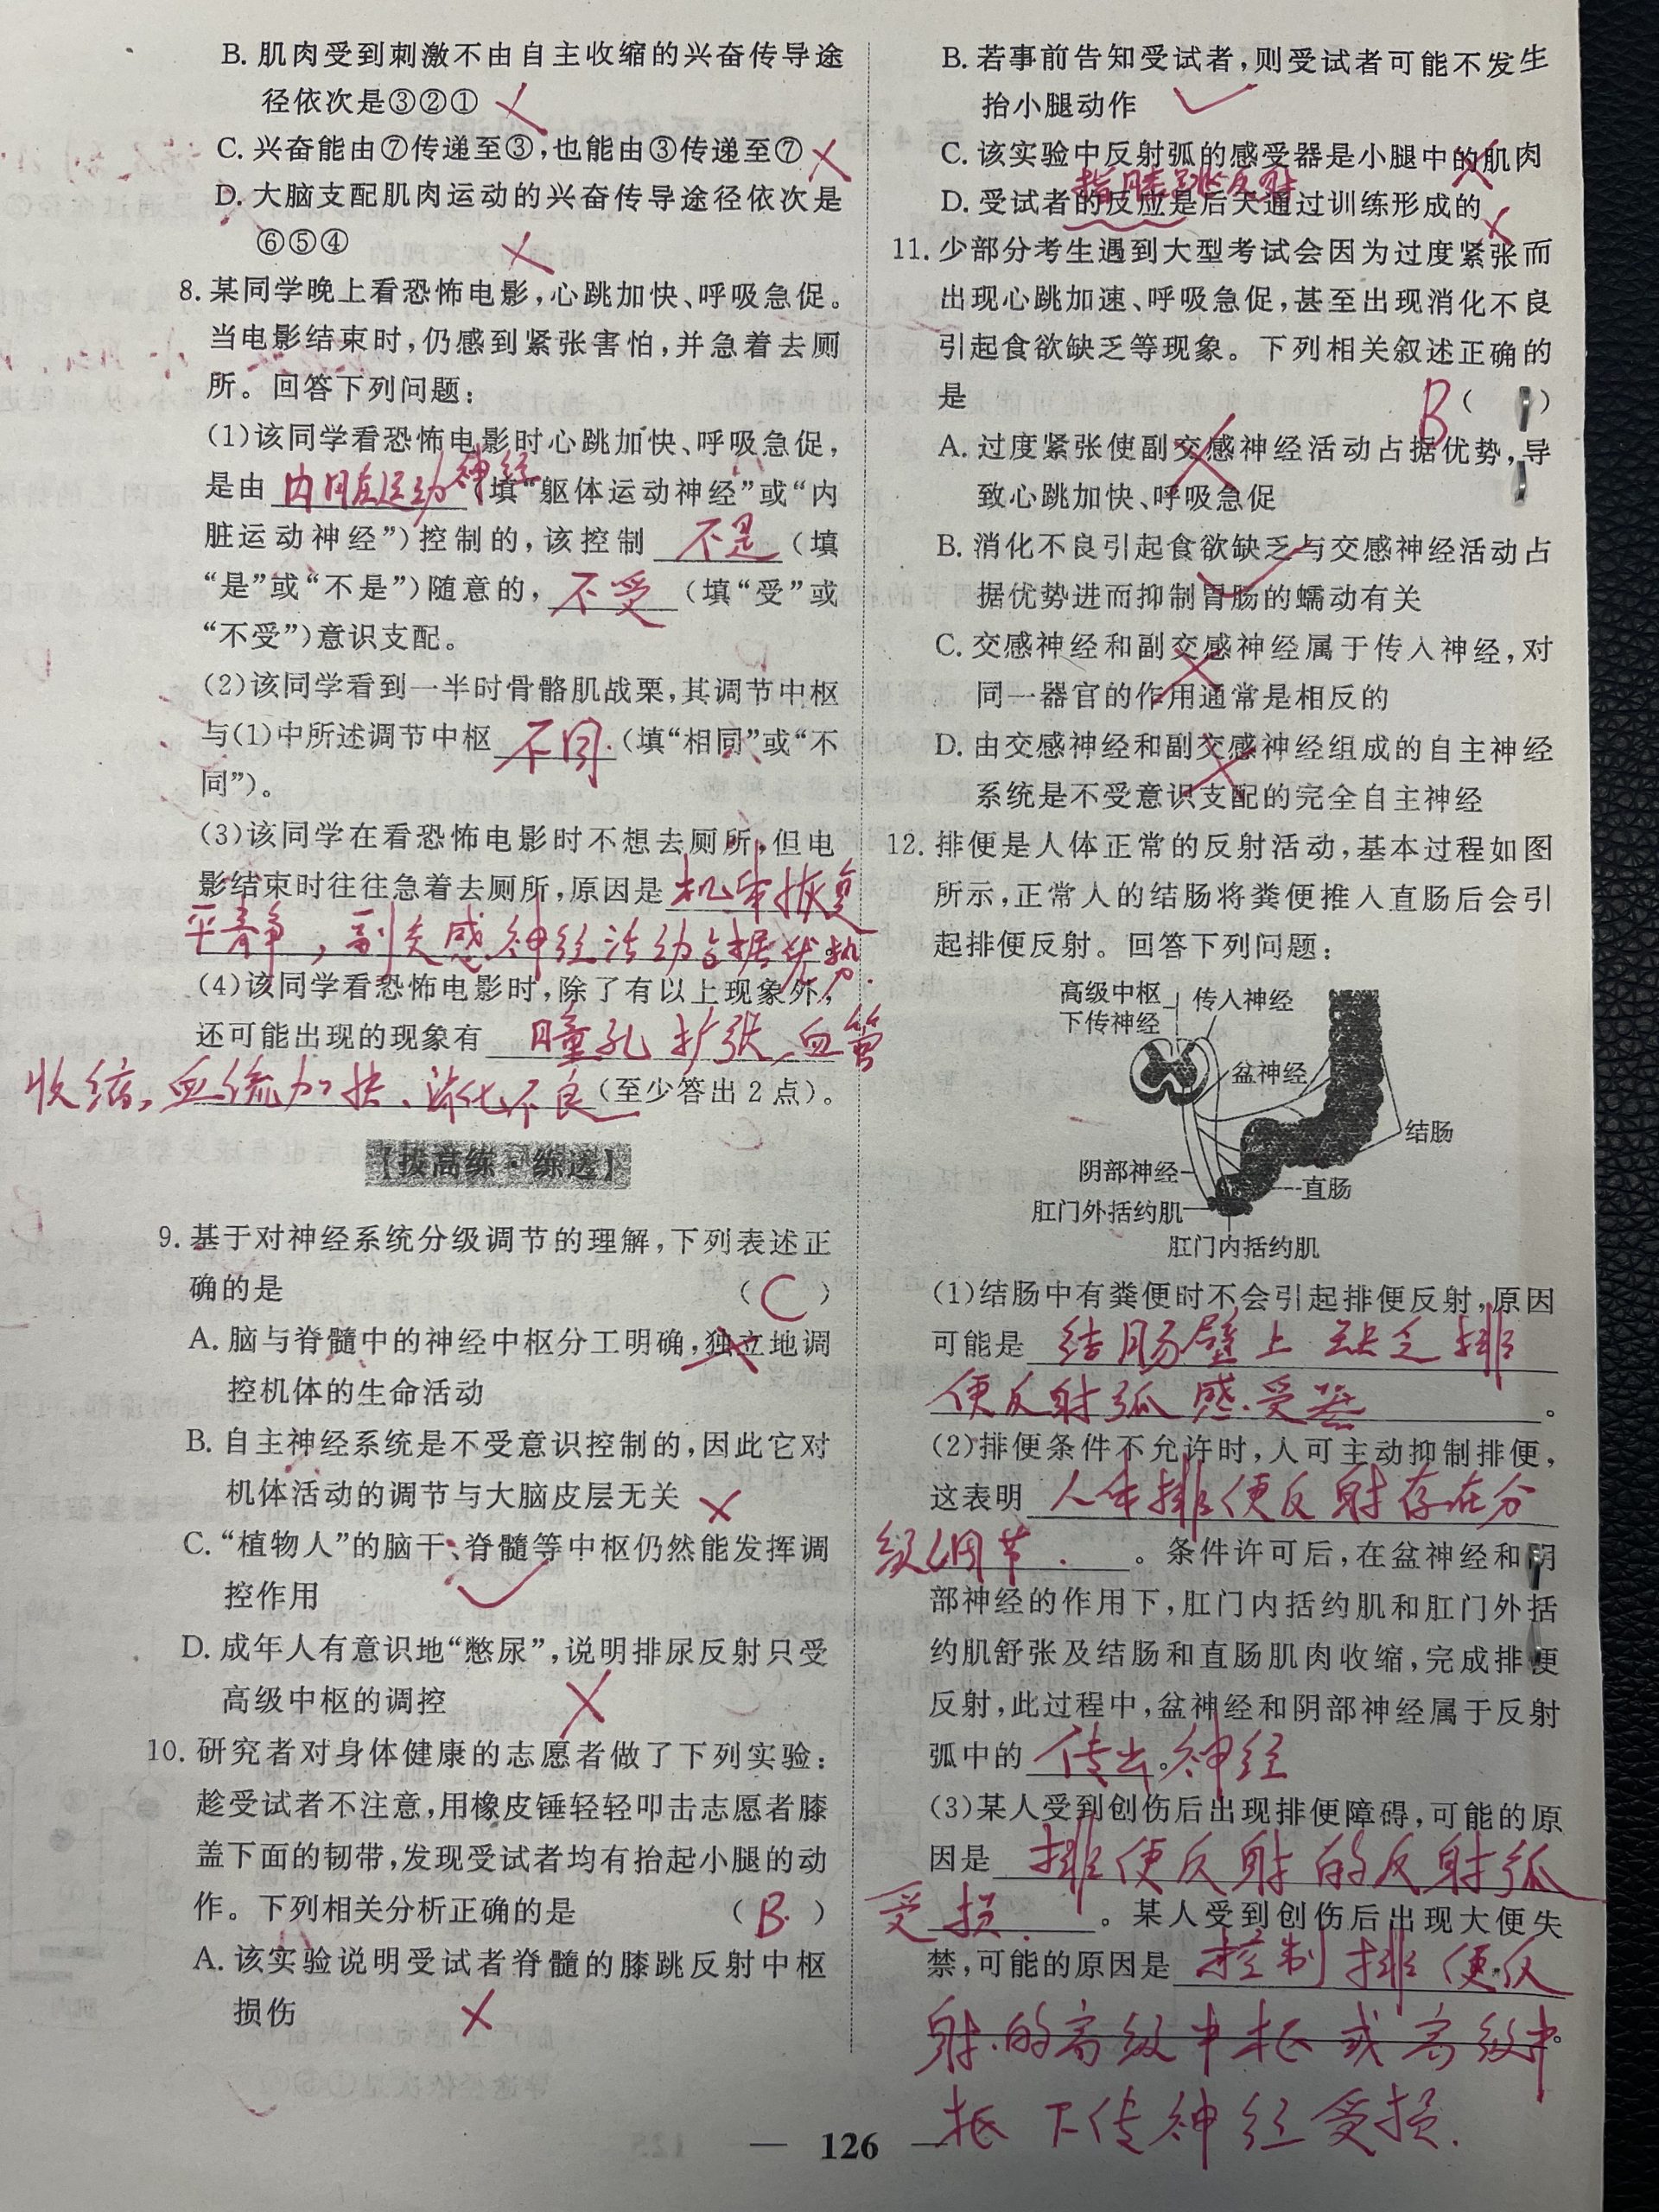 B. 肌肉受到刺激不由自主收缩的兴奋传导途
径依次是③②①
C. 兴奋能由⑦传递至③,也能由③传递至⑦
D. 大脑支配肌肉运动的兴奋传导途径依次是
⑥⑤④
8. 某同学晚上看恐怖电影,心跳加快、呼吸急促。
当电影结束时,仍感到紧张害怕,并急着去厕
所。回答下列问题:
(1)该同学看恐怖电影时心跳加快、呼吸急促,
是由 内脏运动神经 (填“躯体运动神经”或“内
脏运动神经”)控制的,该控制 不是 (填
“是”或“不是”)随意的, 不受 (填“受”或
“不受”)意识支配。
(2)该同学看到一半时骨骼肌战栗,其调节中枢
与(1)中所述调节中枢 不同. (填“相同”或“不
同”)。
(3)该同学在看恐怖电影时不想去厕所,但电
影结束时往往急着去厕所,原因是 机体恢复
平静,副交感神经活动占据优势.
(4)该同学看恐怖电影时,除了有以上现象外,
还可能出现的现象有 瞳孔扩张、血管
收缩、血流加快、消化不良 (至少答出2点)。
【拔高练·练透】
9. 基于对神经系统分级调节的理解,下列表述正
确的是 ( C )
A. 脑与脊髓中的神经中枢分工明确,独立地调
控机体的生命活动
B. 自主神经系统是不受意识控制的,因此它对
机体活动的调节与大脑皮层无关
C. “植物人”的脑干、脊髓等中枢仍然能发挥调
控作用
D. 成年人有意识地“憋尿”,说明排尿反射只受
高级中枢的调控
10. 研究者对身体健康的志愿者做了下列实验:
趁受试者不注意,用橡皮锤轻轻叩击志愿者膝
盖下面的韧带,发现受试者均有抬起小腿的动
作。下列相关分析正确的是 ( B. )
A. 该实验说明受试者脊髓的膝跳反射中枢
损伤
B. 若事前告知受试者,则受试者可能不发生
抬小腿动作
C. 该实验中反射弧的感受器是小腿中的肌肉
指膝跳反射
D. 受试者的反应是后天通过训练形成的
11. 少部分考生遇到大型考试会因为过度紧张而
出现心跳加速、呼吸急促,甚至出现消化不良
引起食欲缺乏等现象。下列相关叙述正确的
是 B ( )
A. 过度紧张使副交感神经活动占据优势,导
致心跳加快、呼吸急促
B. 消化不良引起食欲缺乏与交感神经活动占
据优势进而抑制胃肠的蠕动有关
C. 交感神经和副交感神经属于传入神经,对
同一器官的作用通常是相反的
D. 由交感神经和副交感神经组成的自主神经
系统是不受意识支配的完全自主神经
12. 排便是人体正常的反射活动,基本过程如图
所示,正常人的结肠将粪便推入直肠后会引
起排便反射。回答下列问题:
高级中枢
下传神经
传入神经
盆神经
结肠
阴部神经
直肠
肛门外括约肌
肛门内括约肌
(1)结肠中有粪便时不会引起排便反射,原因
可能是 结肠壁上缺乏排
便反射弧感受器 。
(2)排便条件不允许时,人可主动抑制排便,
这表明 人体排便反射存在分
级调节. 。条件许可后,在盆神经和阴
部神经的作用下,肛门内括约肌和肛门外括
约肌舒张及结肠和直肠肌肉收缩,完成排便
反射,此过程中,盆神经和阴部神经属于反射
弧中的 传出神经 。
(3)某人受到创伤后出现排便障碍,可能的原
因是 排便反射的反射弧
受损. 。某人受到创伤后出现大便失
禁,可能的原因是 控制排便反
射的高级中枢或高级中 。
枢下传神经受损.
— 126 —